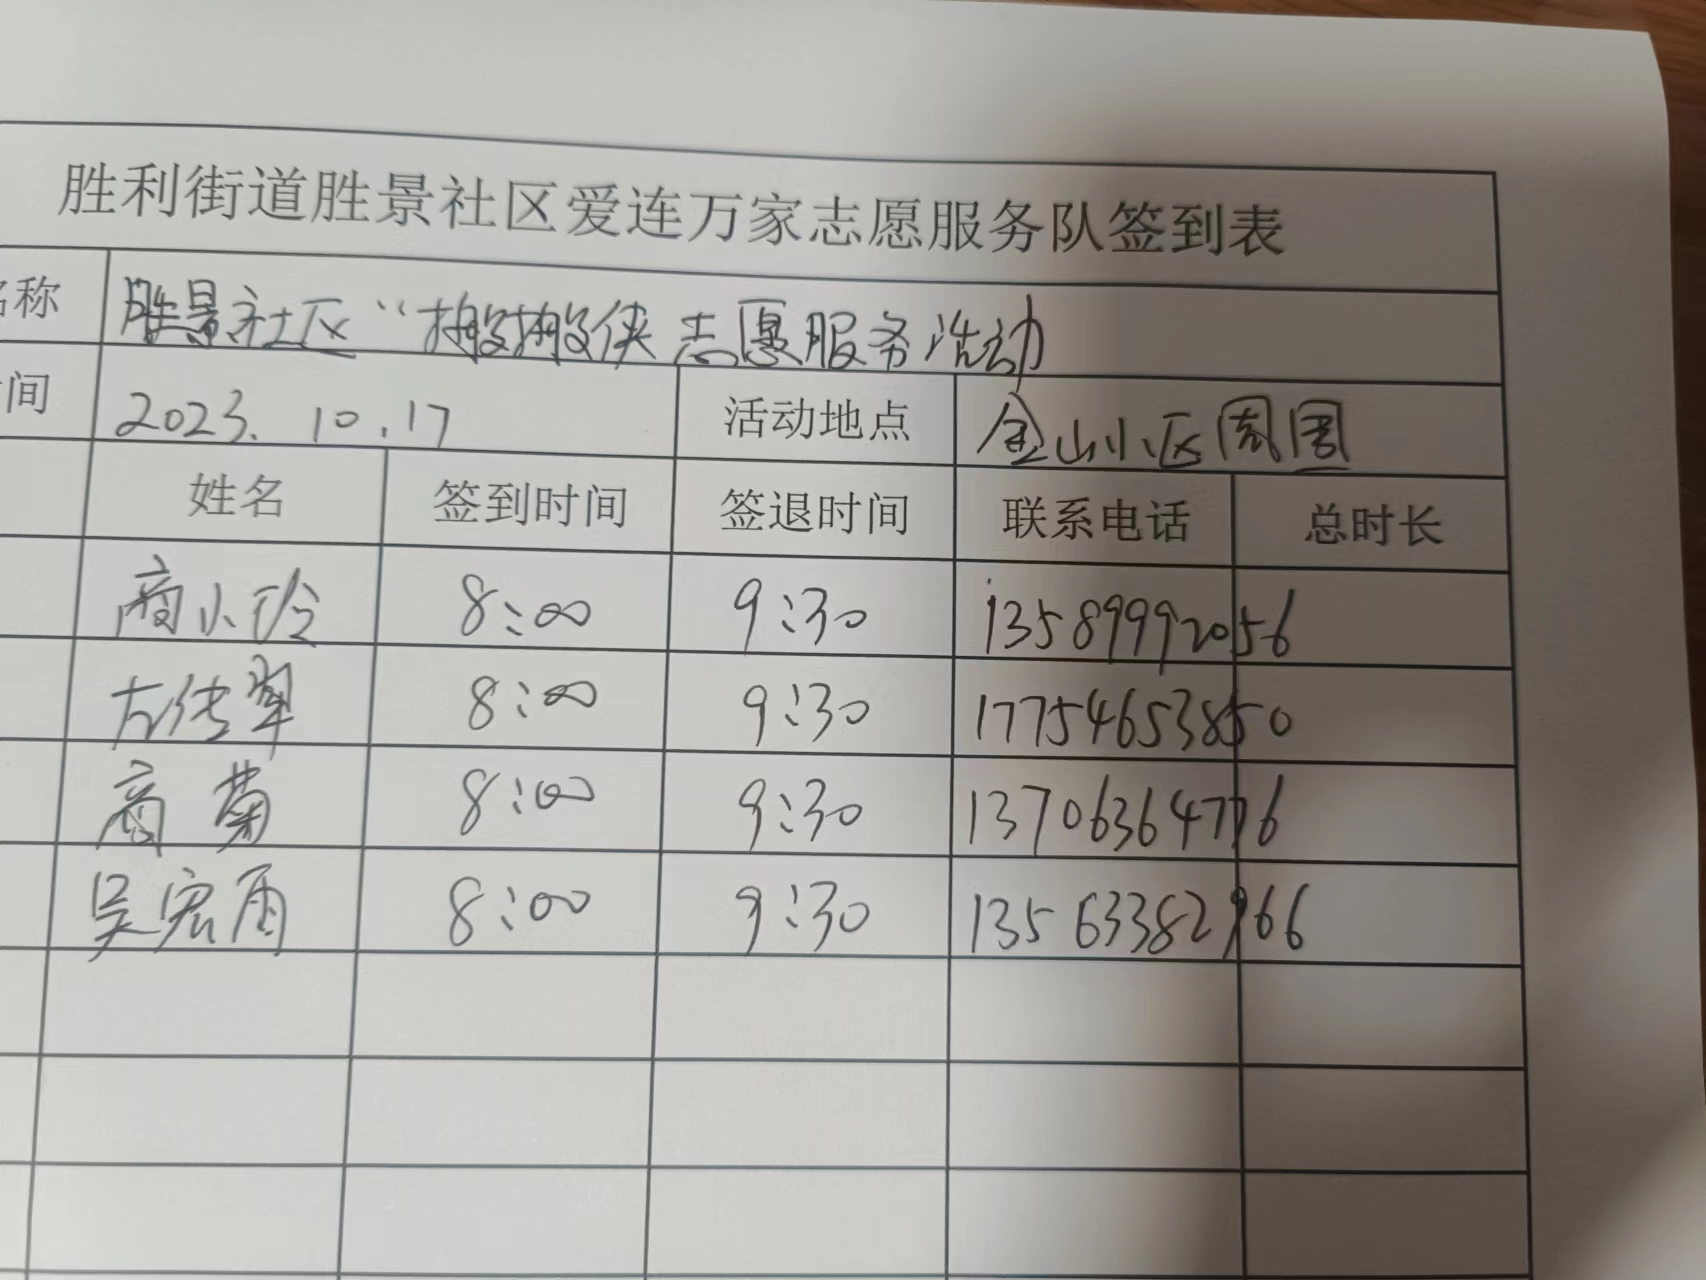 胜利街道胜景社区爱连万家志愿服务队签到表
名称 胜景社区“搬搬侠志愿服务活动
时间 2023.10.17 活动地点 金山小区周围
姓名 签到时间 签退时间 联系电话 总时长
商小玲 8:00 9:30 13589992056
左传翠 8:00 9:30 17754653850
商菊 8:00 9:30 13706364776
吴宏雨 8:00 9:30 13563382966